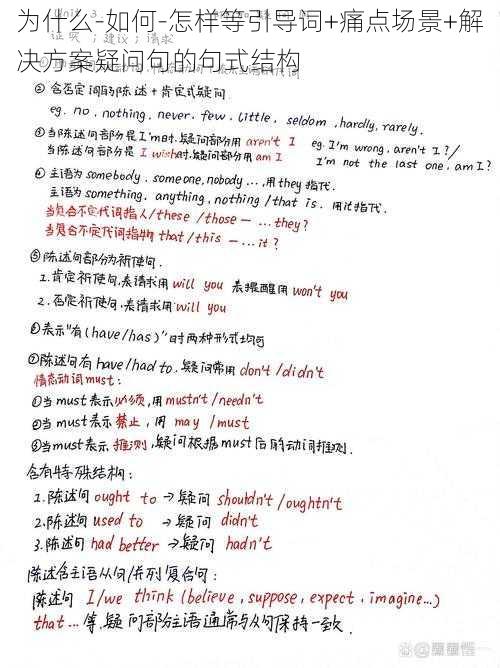 为什么-如何-怎样等引导词+痛点场景+解
决方案疑问句的句式结构
② 含否定词的陈述+肯定式疑问
eg. no, nothing, never, few, little, seldom, hardly, rarely.
③当陈述句部分是 I'm时,疑问部分用 aren't I eg. I'm wrong, aren't I?/
当陈述句部分是 I wish时,疑问部分用 am I I'm not the last one, am I?
④ 主语为somebody, someone, nobody..., 用they指代.
主语为something, anything, nothing/that is, 用it指代.
当复合不定代词指人/these/those — ...they?
当复合不定代词指物 that/this — ...it?
⑤陈述句部分为祈使句.
1.肯定祈使句,表请求用 will you 表提醒用 won't you
2.否定祈使句,表请求用 will you
⑥表示"有(have/has)"时两种形式均可
⑦陈述句有 have/had to, 疑问常用 don't/didn't
情态动词must:
①当 must表示必须,用 mustn't/needn't
②当must表示禁止,用 may/must
③当must表示推测,疑问根据must后的动词推测.
含有特殊结构:
1.陈述句 ought to → 疑问 shouldn't/oughtn't
2.陈述句 used to → 疑问 didn't
3.陈述句 had better → 疑问 hadn't
陈述含主语从句/并列复合句:
陈述句 I/we think (believe, suppose, expect, imagine...)
that...等,疑问部分主语通常与从句保持一致.